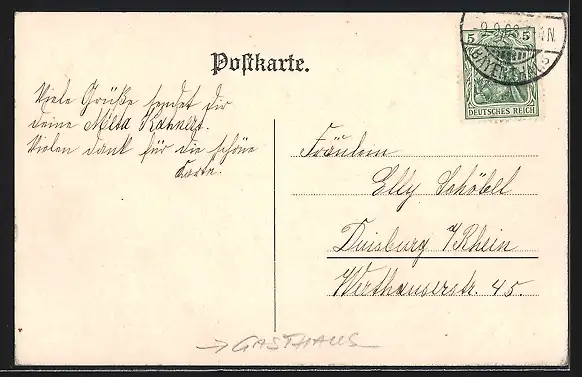 Postkarte.
Viele Grüße sendet dir
deine Meta
Vielen dank für die schöne
Karte.
5 5
DEUTSCHES REICH
Fräulein
Elly Schöbel
Duisburg a/Rhein
Werthauserstr. 45.
→ GASTHAUS